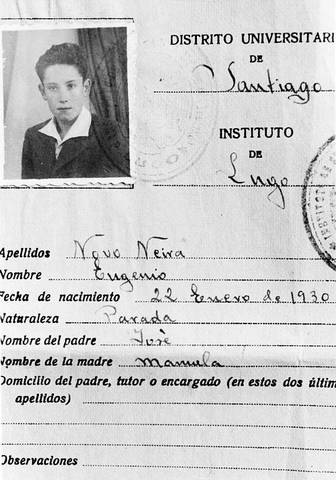 DISTRITO UNIVERSITARI
DE
Santiago
INSTITUTO
DE
Lugo
Apellidos Novo Neira
Nombre Eugenio
Fecha de nacimiento 22 Enero de 1930
Naturaleza Parada
Nombre del padre José
Nombre de la madre Manuela
Domicilio del padre, tutor o encargado (en estos dos últim
apellidos)
Observaciones